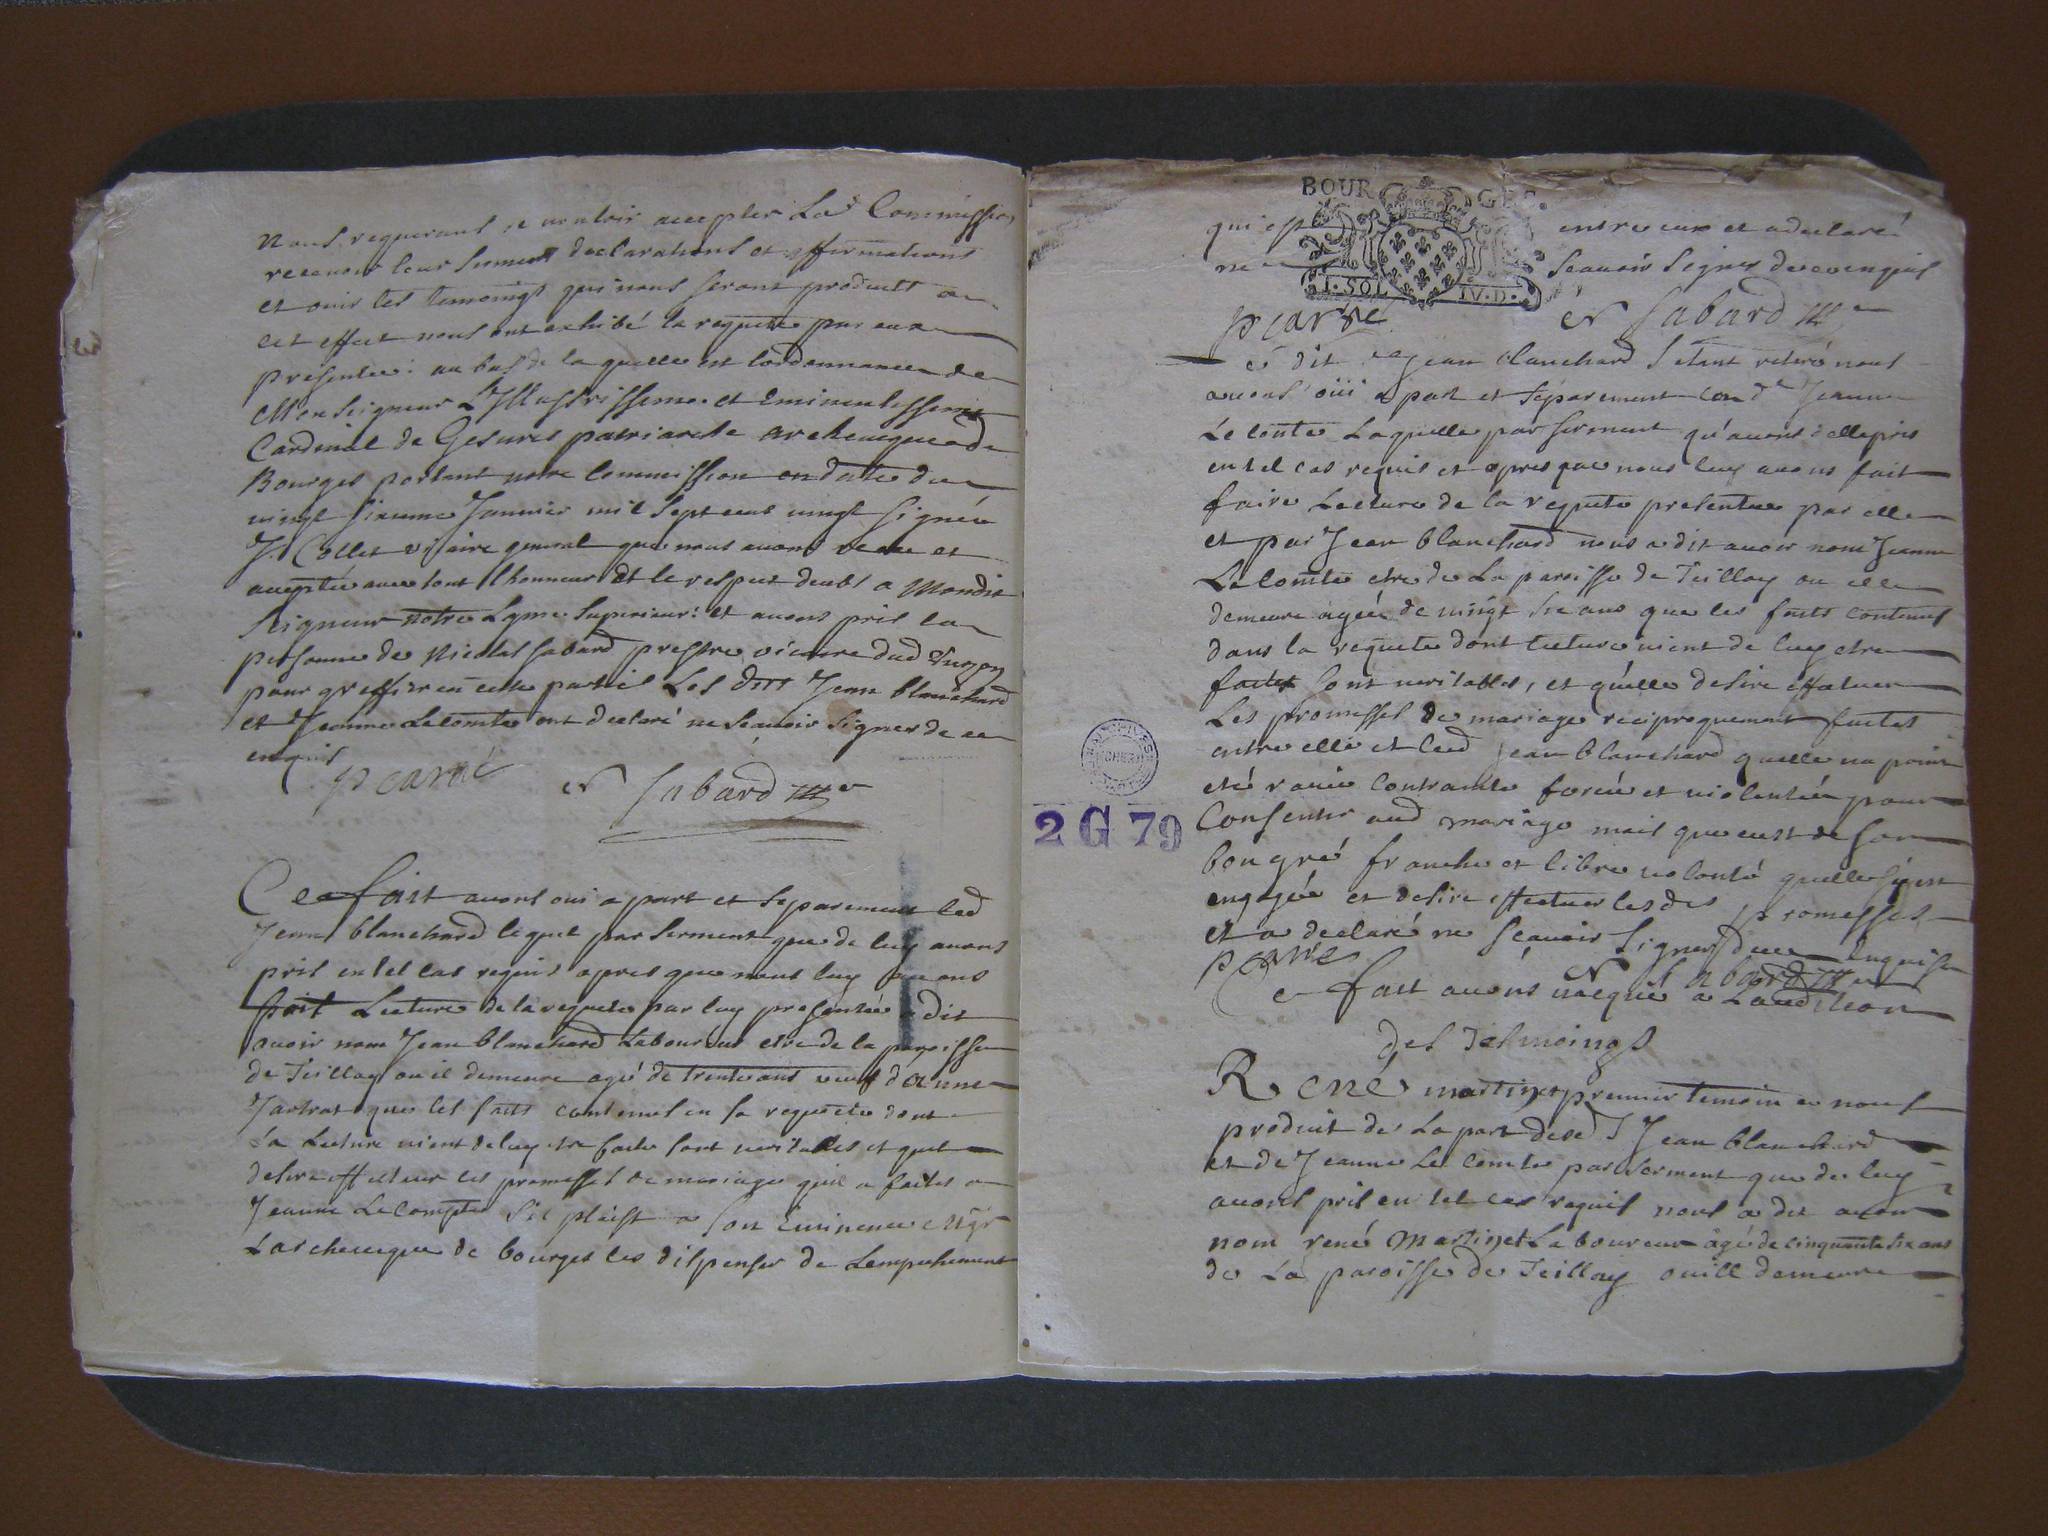 Nous requerans de vouloir accepter Lad Commission
recevoir leur serment declarations et affirmations
et ouir les temoings qui nous seront produits a
cet effect nous ont exhibé la requete par eux
presentée: au bas de la quelle est lordonnance de
Monseigneur L'Illustrissime et Eminentissime
Cardinal de Gesvres patriarche archeveque de
Bourges portant notre Commission en datte du
vingt sixieme Janvier mil sept cens vingt signée
J. Collet vicaire general que nous avons receue et
acceptée avec tout l'honneur et le respect deubt a Mondit
Seigneur notre Superieur: et avons pris la
personne de Nicolas sabard prestre vicaire dud
pour greffier en cette partie Les dits Jean blanchard
et Jeanne Lecomte ont declaré ne scavoir signer de ce
enquis
P carré N Sabard
Ce fait avons oui a part et separement led
Jean blanchard lequel par serment que de luy avons
pris en tel cas requis apres que nous luy avons
fait Lecture de la requete par luy presentée a dit
avoir nom Jean blanchard Laboureur etre de la paroisse
de Teillay ou il demeure agé de trente ans veuf danne
que les faits contenus en sa requete dont
La Lecture vient de luy etre faite sont veritables et quil
desire effectuer les promesses de mariage quil a faites a
Jeanne Lecompte sil plaist a son Eminence Mgr
Larcheveque de bourges les dispenser de Lempechement
3
BOURGES.
qui est entre eux et a declaré
ne scavoir signer de ce enquis
I. SOL IV. D.
P carré N Sabard
Jean blanchard setant retiré nous
avons oüi a part et separement lad Jeanne
Le comte Laquelle par serment qu'avons d'elle pris
en tel cas requis et apres que nous luy avons fait
faire Lecture de la requete presentée par elle
et par Jean blanchard nous a dit avoir nom Jeanne
Le comte etre de La paroisse de Teillay ou elle
demeure agée de vingt six ans que les faits contenus
dans la requete dont lecture vient de luy etre
faite sont veritables, et qu'elle desire effectuer
Les promesses de mariage reciproquement faites
entre elle et led Jean blanchard quelle na point
eté ravie contrainte forcée et violentée pour
Consentir aud mariage mais que cest de son
bon gré franche et libre volonté quelle sy est
engagée et desire effectuer lesdes promesses
et a declaré ne scavoir signer de ce enquise
P carré N Sabard
Ce fait avons vacqué a Laudition
des Tesmoings
René martinet premier temoin a nous
produit de La part desd Jean blanchard
et de Jeanne Le Comte par serment que de luy
avons pris en tel cas requis nous a dit avoir
nom rené Martinet Laboureur âgé de cinquante six ans
de La paroisse de Teillay ouill demeure
2 G 79